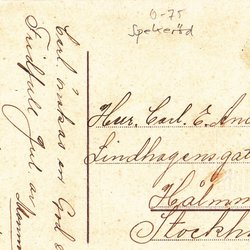 0-75
Spekeröd
Carl önskas en God
Fridfull Jul av
Mamma
Herr. Carl. E. And
Lindhagensgat
Holmm
Stockh